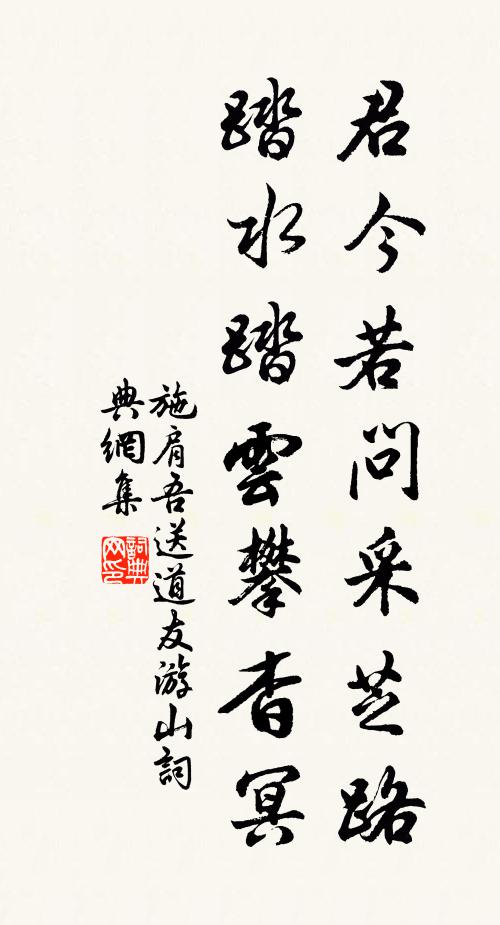 君今若問采芝路
踏水踏雲攀杳冥
施肩吾送道友游山詞
典網集
詞典网印